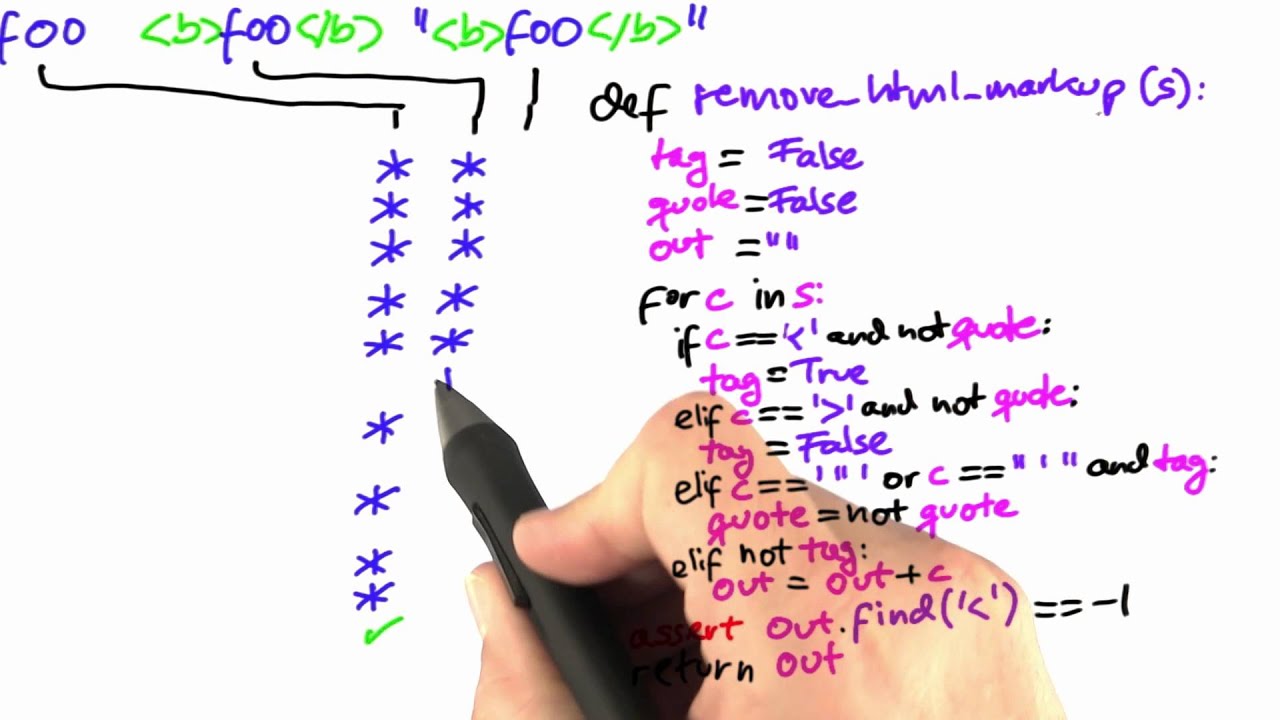 foo <b>foo</b> "<b>foo</b>"
def remove_html_markup (s):
tag = False
quote = False
out = ""
for c in s:
if c == '<' and not quote:
tag = True
elif c == '>' and not quote:
tag = False
elif c == '"' or c == "'" and tag:
quote = not quote
elif not tag:
out = out + c
assert out.find('<') == -1
return out
* *
* *
* *
* *
* *
*
*
*
*
✓